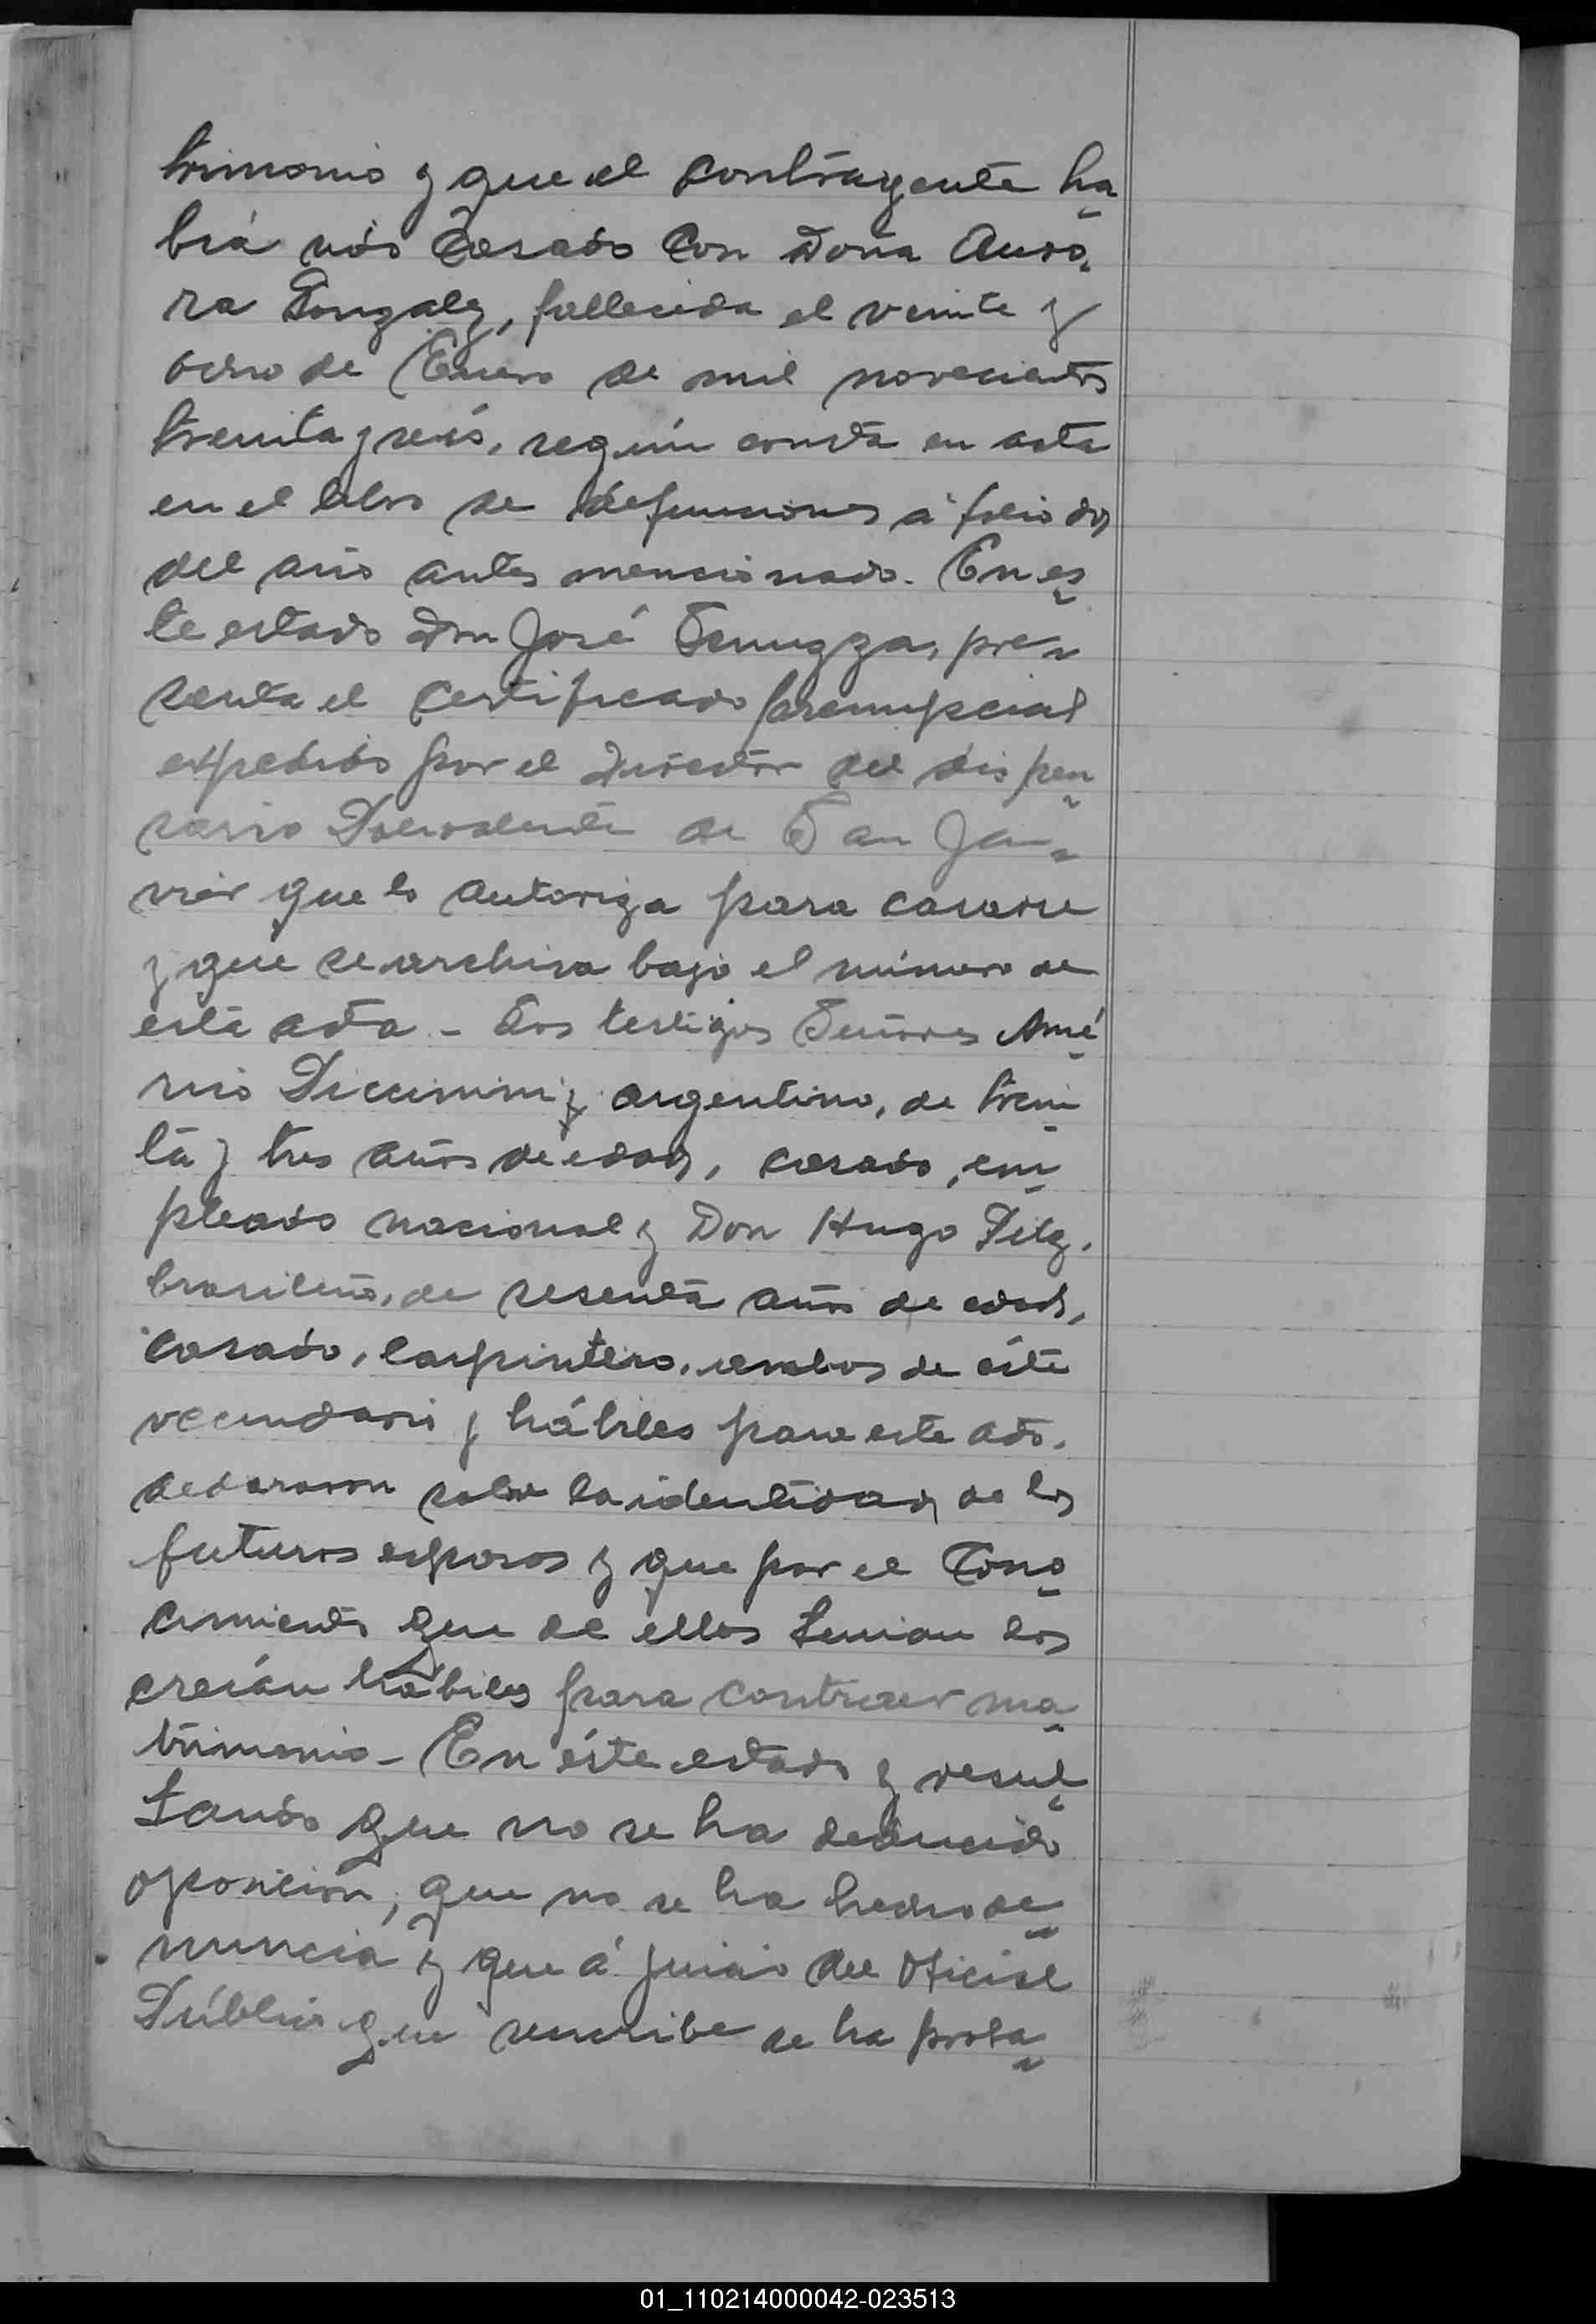 trimonio y que el contrayente ha
bía sido casado con Doña Auro
ra Gonzalez, fallecida el veinte y
ocho de Enero de mil novecientos
treinta y seis, según consta en acta
en el libro de defunciones á folio dos
del año antes mencionado. En es
te estado Don José pre
senta el certificado prenupcial
expedido por el Director del dispen
sario Polivalente de San Ja
vier que lo autoriza para casarse
y que se archiva bajo el número de
esta acta - Los testigos Señores Amé
rico argentino, de trein
ta y tres años de edad, casado, em
pleado nacional y Don Hugo
brasileño, de sesenta años de edad,
casado, carpintero, ambos de éste
vecindario y hábiles para este acto,
declararon sobre la identidad de los
futuros esposos y que por el cono
cimiento que de ellos tenian los
creían hábiles para contraer ma
trimonio - En éste estado y resul
tando que no se ha deducido
oposición, que no se ha hecho de
nuncia y que á juicio del Oficial
Público que suscribe se ha proba
01_110214000042-023513